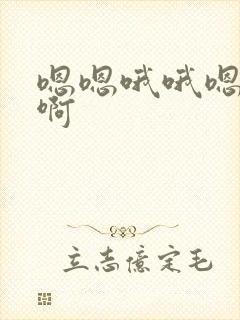 嗯嗯哦哦嗯
啊
立志億定毛